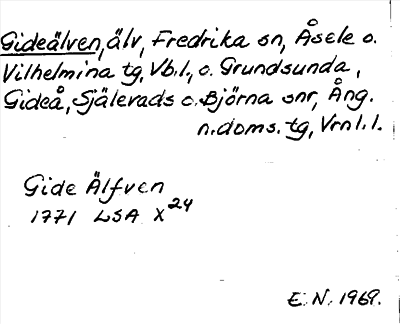 Gideälven, älv, Fredrika sn, Åsele o.
Vilhelmina tg, Vb.l., o. Grundsunda,
Gideå, Själevads o. Björna snr, Ång.
n. doms. tg, Vrnl. l.
Gide Älfven
1771 LSA X 24
E. N. 1969.